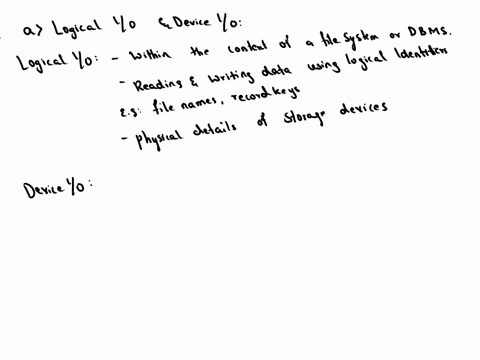 a> Logical I/O & Device I/O:
Logical I/O: - Within the context of a file system or DBMS.
- Reading & writing data using logical Identifiers
E.g: file names, record keys
- physical details of storage devices
Device I/O: